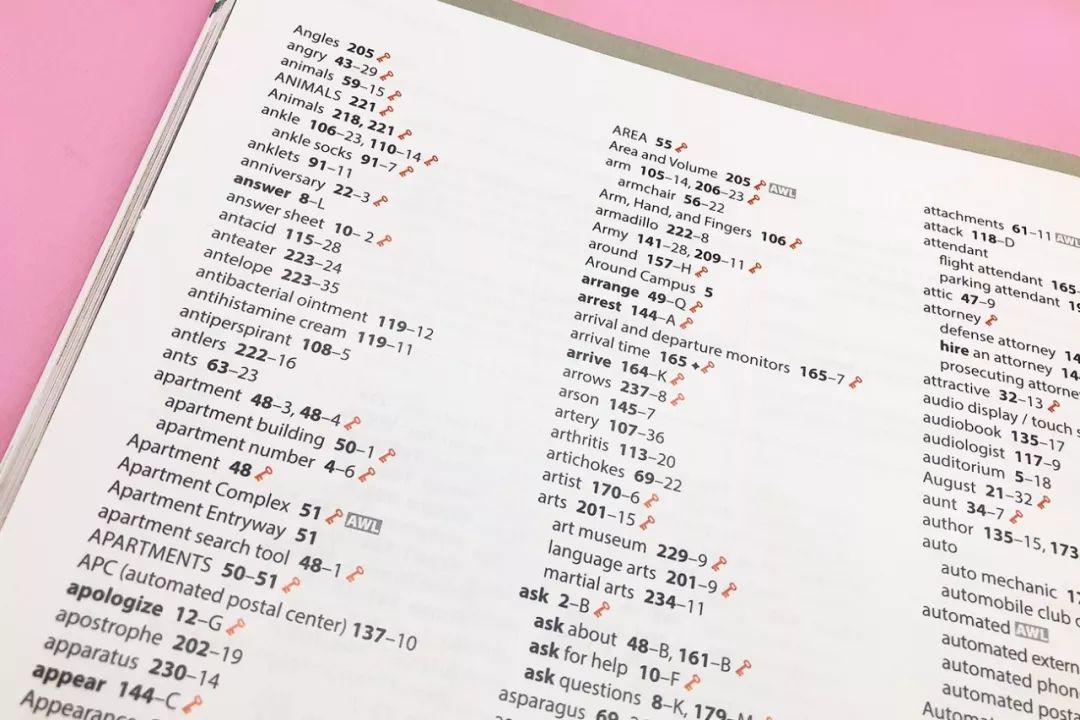 Angles 205
angry 43–29
animals 59–15
ANIMALS 221
Animals 218, 221
ankle 106–23, 110–14
ankle socks 91–7
anklets 91–11
anniversary 22–3
answer 8–L
answer sheet 10– 2
antacid 115–28
anteater 223–24
antelope 223–35
antibacterial ointment 119–12
antihistamine cream 119–11
antiperspirant 108–5
antlers 222–16
ants 63–23
apartment 48–3, 48–4
apartment building 50–1
apartment number 4–6
Apartment 48
Apartment Complex 51 AWL
Apartment Entryway 51
apartment search tool 48–1
APARTMENTS 50–51
APC (automated postal center) 137–10
apologize 12–G
apostrophe 202–19
apparatus 230–14
appear 144–C
AREA 55
Area and Volume 205 AWL
arm 105–14, 206–23
armchair 56–22
Arm, Hand, and Fingers 106
armadillo 222–8
Army 141–28, 209–11
around 157–H
Around Campus 5
arrange 49–Q
arrest 144–A
arrival and departure monitors 165–7
arrival time 165
arrive 164–K
arrows 237–8
arson 145–7
artery 107–36
arthritis 113–20
artichokes 69–22
artist 170–6
arts 201–15
art museum 229–9
language arts 201–9
martial arts 234–11
ask 2–B
ask about 48–B, 161–B
ask for help 10–F
ask questions 8–K, 179–M
asparagus 69
attachments 61–11 AWL
attack 118–D
attendant
flight attendant 165
parking attendant
attic 47–9
attorney
defense attorney
hire an attorney
prosecuting attorney
attractive 32–13
audio display / touch
audiobook 135–17
audiologist 117–9
auditorium 5–18
August 21–32
aunt 34–7
author 135–15, 173
auto
auto mechanic
automobile club
automated AWL
automated
automated
automated